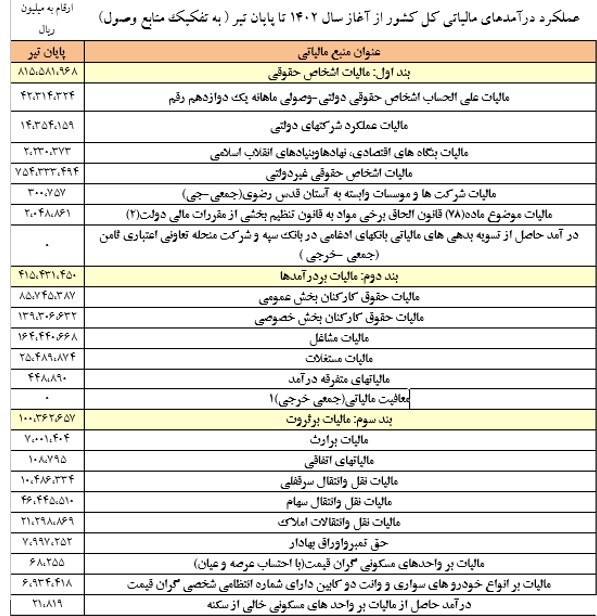 عملکرد درآمدهای مالیاتی کل کشور از آغاز سال ۱۴۰۲ تا پایان تیر ( به تفکیک منابع وصول)
ارقام به میلیون
ریال
عنوان منبع مالیاتی پایان تیر
بند اول: مالیات اشخاص حقوقی ۸۱۵،۵۸۱،۹۶۸
مالیات علی الحساب اشخاص حقوقی دولتی-وصولی ماهانه یک دوازدهم رقم ۴۲،۳۱۴،۳۲۴
مالیات عملکرد شرکتهای دولتی ۱۴،۳۵۴،۱۵۹
مالیات بنگاه های اقتصادی، نهادهاوبنیادهای انقلاب اسلامی ۲،۲۳۰،۳۷۳
مالیات اشخاص حقوقی غیردولتی ۷۵۴،۳۳۳،۴۹۴
مالیات شرکت ها و موسسات وابسته به آستان قدس رضوی(جمعی-جی) ۳۰۰،۷۵۷
مالیات موضوع ماده(۷۸) قانون الحاق برخی مواد به قانون تنظیم بخشی از مقررات مالی دولت(۲) ۲،۰۴۸،۸۶۱
در آمد حاصل از تسویه بدهی های مالیاتی بانکهای ادغامی در بانک سپه و شرکت منحله تعاونی اعتباری ثامن
(جمعی -خرجی ) ۰
بند دوم: مالیات بردرآمدها ۴۱۵،۴۳۱،۴۵۰
مالیات حقوق کارکنان بخش عمومی ۸۵،۷۴۵،۳۸۷
مالیات حقوق کارکنان بخش خصوصی ۱۳۹،۳۰۶،۶۳۲
مالیات مشاغل ۱۶۴،۴۴۰،۶۶۸
مالیات مستغلات ۲۵،۴۸۹،۸۷۴
مالیاتهای متفرقه درآمد ۴۴۸،۸۹۰
معافیت مالیاتی(جمعی خرجی)۱ ۰
بند سوم: مالیات برثروت ۱۰۰،۳۶۲،۶۵۷
مالیات برارث ۷،۰۰۱،۴۰۴
مالیاتهای اتفاقی ۱۰۸،۷۹۵
مالیات نقل وانتقال سرقفلی ۱۰،۴۸۶،۳۳۴
مالیات نقل وانتقال سهام ۴۶،۴۴۵،۵۱۰
مالیات نقل وانتقالات املاک ۲۱،۲۹۸،۸۶۹
حق تمبرواوراق بهادار ۷،۹۹۷،۲۵۲
مالیات بر واحدهای مسکونی گران قیمت(با احتساب عرصه و عیان) ۶۸،۲۵۵
مالیات بر انواع خودرو های سواری و وانت دو کابین دارای شماره انتظامی شخصی گران قیمت ۶،۹۳۴،۴۱۸
درآمد حاصل از مالیات بر واحد های مسکونی خالی از سکنه ۲۱،۸۱۹